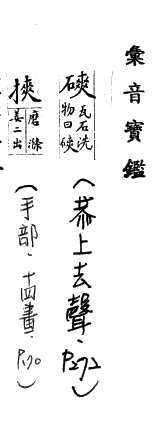 彙音寶鑑
磢 瓦石洗物曰磢
（恭上去聲，P272）
摤 磨滌姜二出
（手部，十四畫，P.70）